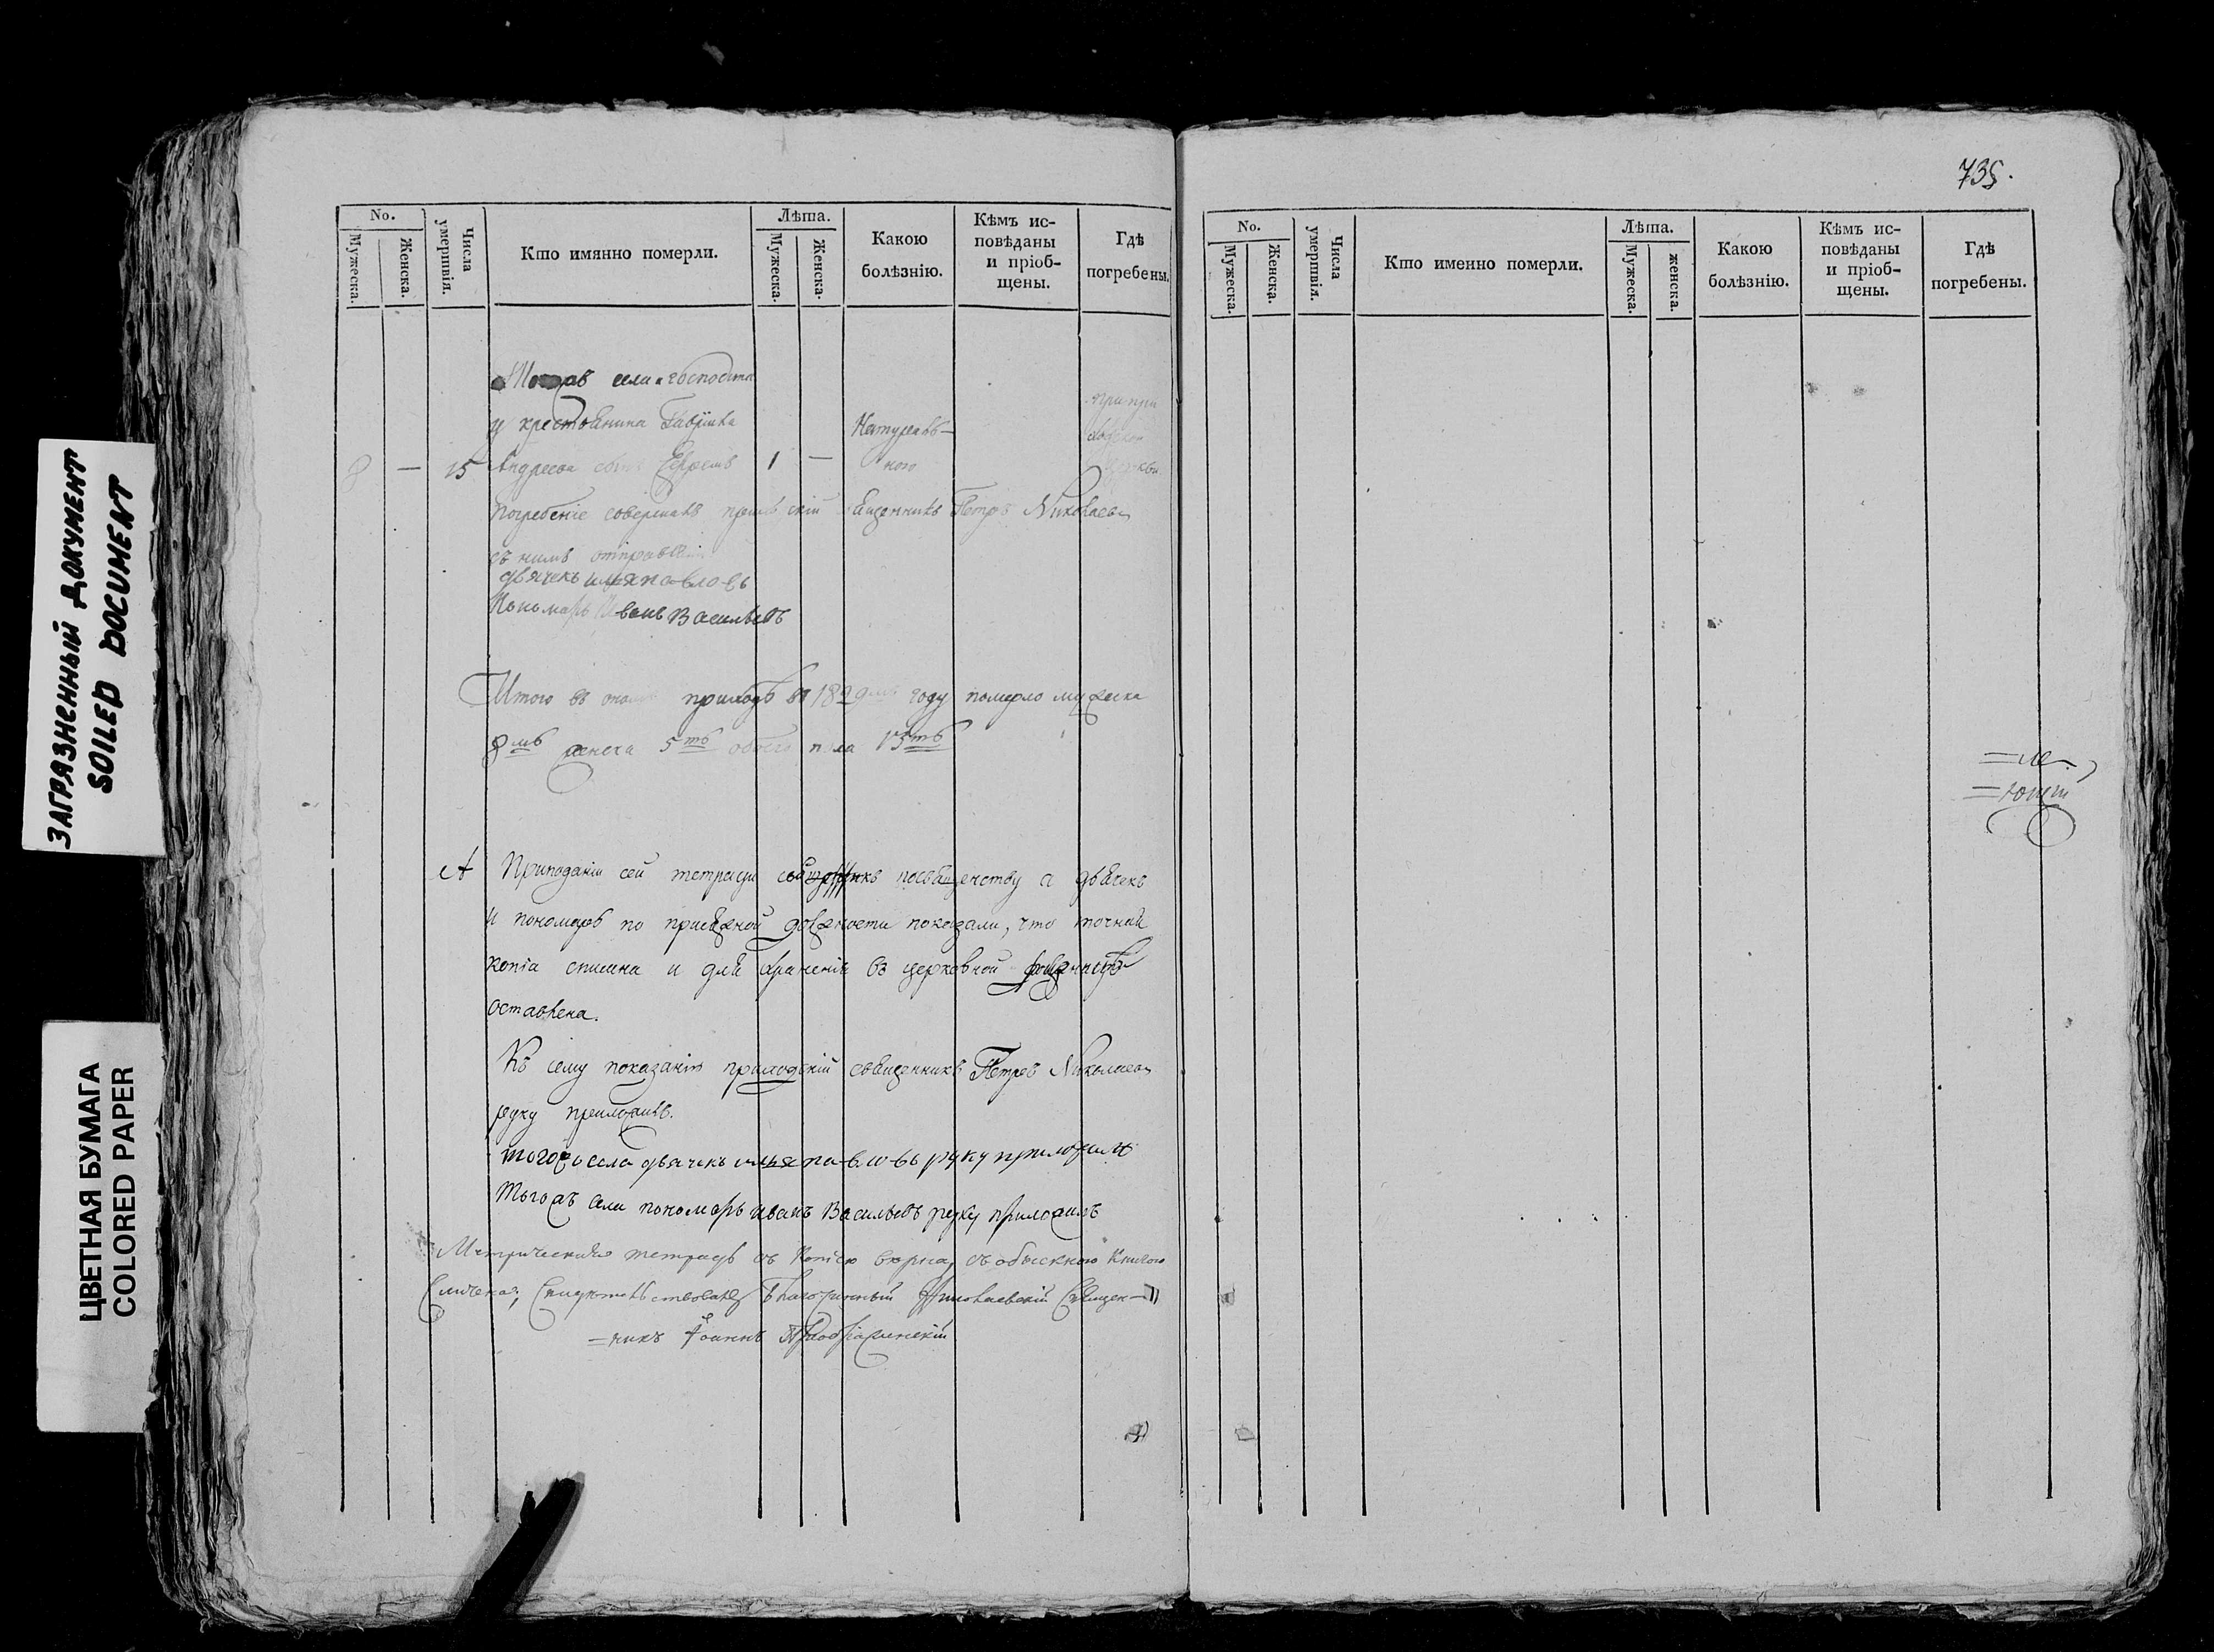 ЗАГРЯЗНЕННЫЙ ДОКУМЕНТ
SOILED DOCUMENT
ЦВЕТНАЯ БУМАГА
COLORED PAPER
No.
Мужеска.
Женска.
Числа умершвія.
Кто имянно померли.
Лѣта.
Мужеска.
Женска.
Какою болѣзнію.
Кѣмъ исповѣданы и пріобщены.
Гдѣ погребены.
села господина
у крестьянина Гавріила
Натураль-
при при
8 — 15 Андреева сынъ Ефремъ 1 — ного
погребеніе совершалъ священникъ Петръ Николаевъ
съ нимъ отправляли
дьячекъ илья павловъ
Пономарь Иванъ Васильевъ
Итого въ приходѣ въ 1829мъ году померло мужеска
8мь женска 5ть обоего пола 13ть
А При поданіи сей тетради священникъ по священству а дьячекъ
и пономарь по присяжной должности показали, что точная
копіа списана и для храненія въ церковной
оставлена.
Къ сему показанію приходскій священникъ Петръ Николаевъ
руку приложилъ.
тогожъ села дьячекъ илья павловъ руку приложилъ
Тогожъ села пономарь иванъ Васильевъ руку приложилъ
Метрическая тетрадь съ копіею верна, съ обыскною Книгою
Сличена, Свидѣтельствовалъ Благочинный Николаевскій Священ-
=никъ Іоаннъ
735.
No.
Мужеска.
Женска.
Числа умершвія.
Кто именно померли.
Лѣта.
Мужеска.
женска.
Какою болѣзнію.
Кѣмъ исповѣданы и пріобщены.
Гдѣ погребены.